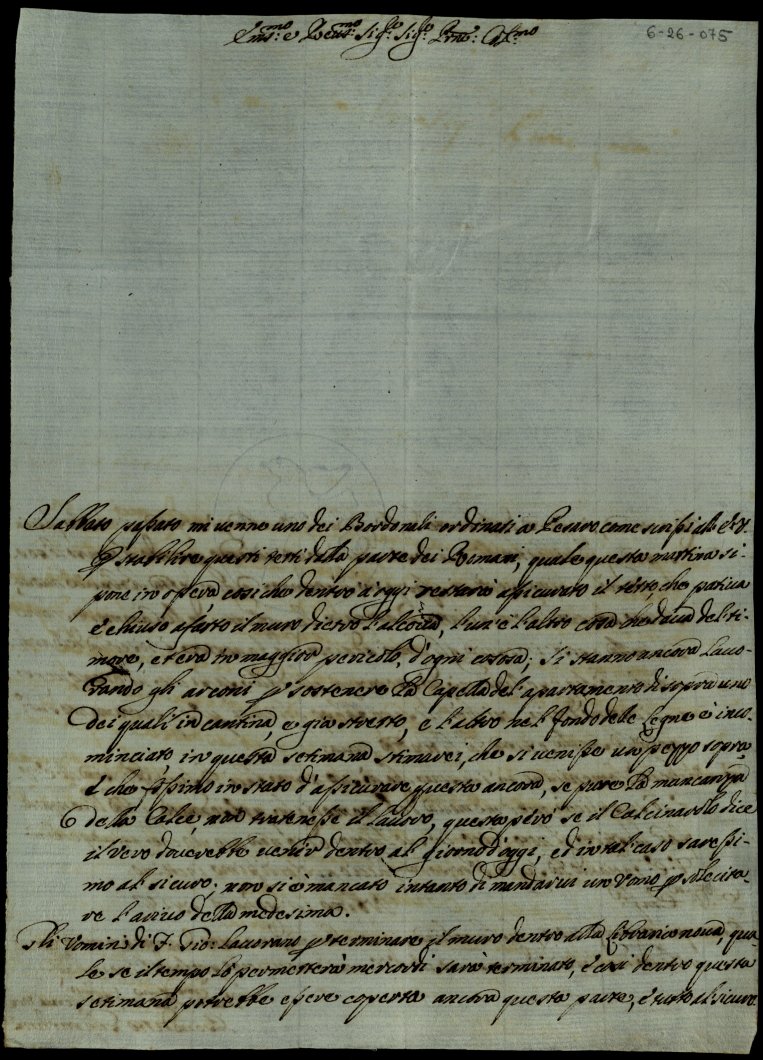 Em.mo: e Reu.mo: Sig.r Sig.r Prne: Col.mo
6-26-075
Sabbato passato mi venne uno dei Bordonali ordinati a Pesaro come scrissi alla E: V:
p stabilire questi tetti dalla parte dei Romani, quale questa mattina si
pone in opera cosiche dentro d'oggi restarà assicurato il tetto, che pativa
è chiuso afatto il muro dietro l'alcova, l'una e l'altro cosa che dava del ti-
more, et era in maggior pericolo, d'ogni cosa; Si stanno ancora lavo-
rando gli arconi p sostenere la Capella del'apartamento di sopra uno
dei quali in cantina, è gia stretto, e l'altro nel fondo dele Legna è inco-
minciato in questa setimana stimarei, che si venisse un pezzo sopra,
è che fossimo in stato d'assicurare questa ancora, se pure la mancanza
della Calce, non tratenesse il lavoro, questa però se il Calcinarolo dice
il vero doverebbe venir dentro al giorno d'oggi, ed in tal caso saressi-
mo al sicuro; non si è mancato intanto di mandarvi un Vomo p solecita-
re l'arrivo della medesima.
Gli Vomini di F. Gio: lavorano p terminare il muro dentro alla Libraria nova, qua-
le se il tempo lo permetterà mercordi sarà terminato, è cosi dentro questa
setimana potrebbe essere coperta ancora questa parte, è tutto al sicuro